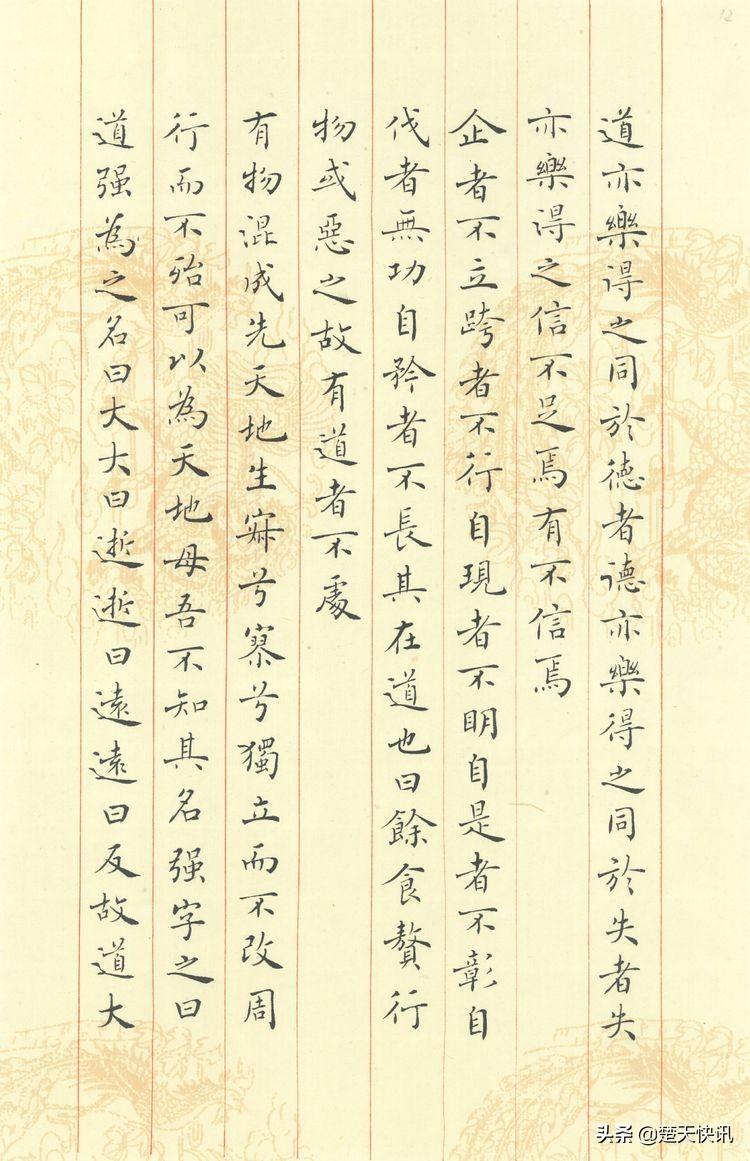 12
道亦樂得之同於德者德亦樂得之同於失者失
亦樂得之信不足焉有不信焉
企者不立跨者不行自現者不明自是者不彰自
伐者無功自矜者不長其在道也曰餘食贅行
物或惡之故有道者不處
有物混成先天地生寂兮寥兮獨立而不改周
行而不殆可以為天地母吾不知其名强字之曰
道强為之名曰大大曰逝逝曰遠遠曰反故道大
头条 @楚天快讯